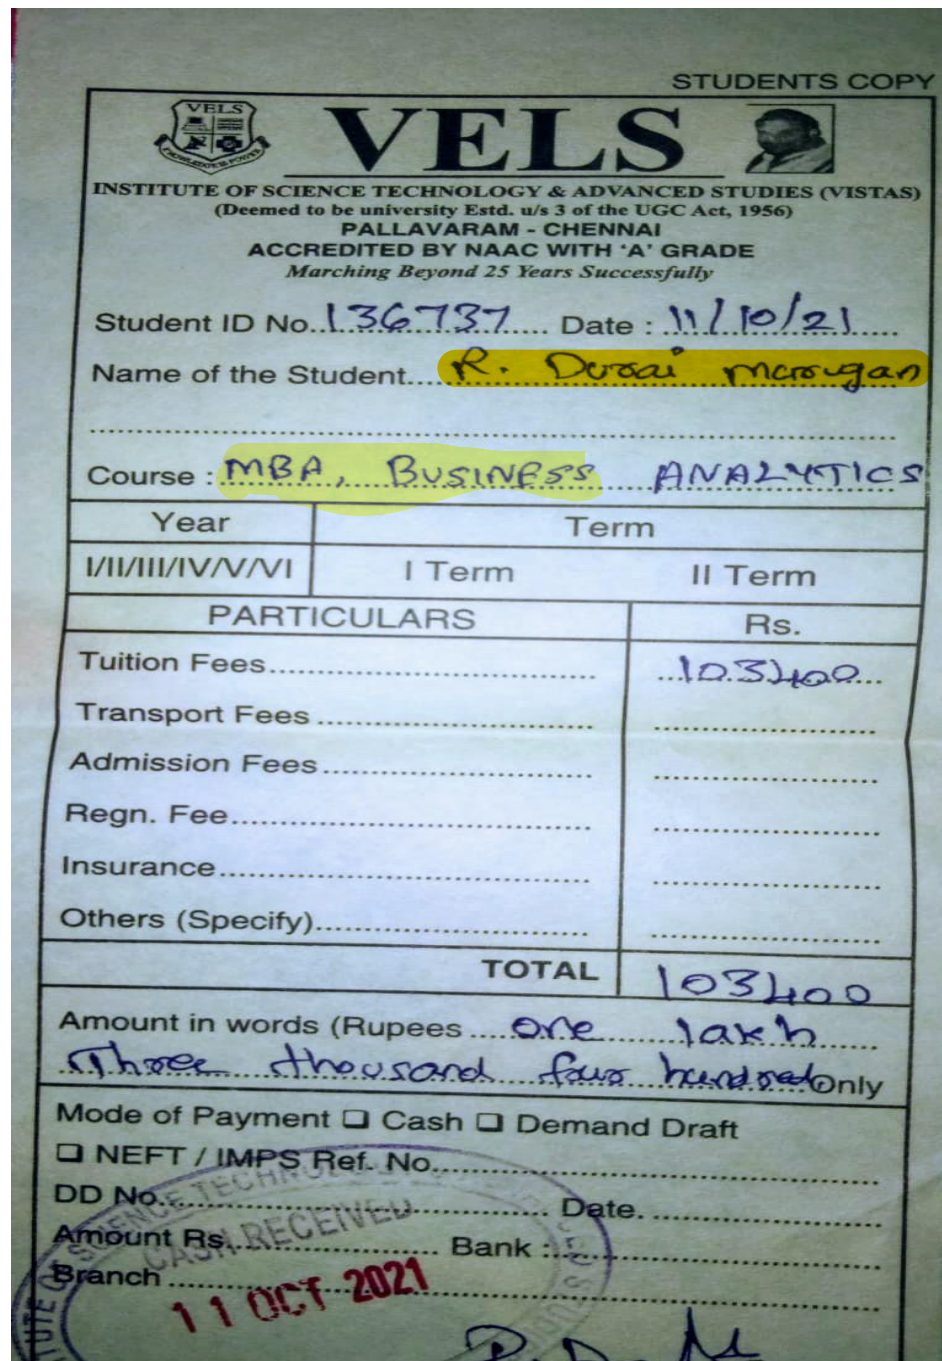 STUDENTS COPY
VELS
VELS
INSTITUTE OF SCIENCE TECHNOLOGY & ADVANCED STUDIES (VISTAS)
(Deemed to be university Estd. u/s 3 of the UGC Act, 1956)
PALLAVARAM - CHENNAI
ACCREDITED BY NAAC WITH 'A' GRADE
Marching Beyond 25 Years Successfully
Student ID No. 136737 Date : 11/10/21
Name of the Student R. Durai murugan
Course : MBA, BUSINESS ANALYTICS
Year Term
I/II/III/IV/V/VI I Term II Term
PARTICULARS Rs.
Tuition Fees 103400
Transport Fees
Admission Fees
Regn. Fee
Insurance
Others (Specify)
TOTAL 103400
Amount in words (Rupees one lakh
Three thousand four hundred Only
Mode of Payment ❑ Cash ❑ Demand Draft
❑ NEFT / IMPS Ref. No.
DD No. Date.
Amount Rs. Bank :
Branch
CASH RECEIVED
11 OCT 2021